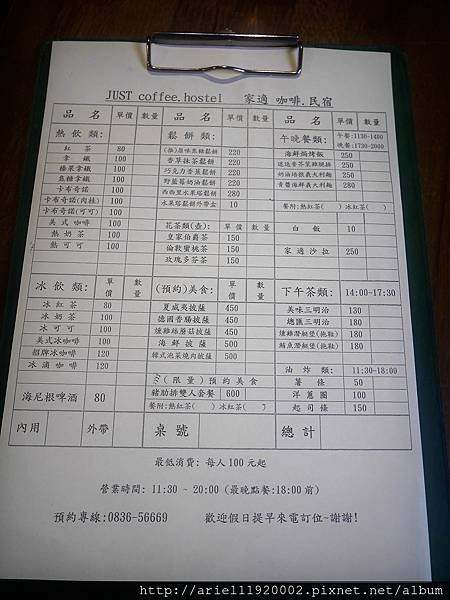 JUST coffee.hostel 家適 咖啡.民宿
品 名 單價 數量
熱飲類:
紅 茶 80
拿 鐵 100
榛果拿鐵 100
焦糖拿鐵 100
卡布奇諾 100
卡布奇諾(肉桂) 100
卡布奇諾(可可) 100
美式咖啡 100
熱奶茶 100
熱可可 100
冰飲類: 單價 數量
冰紅茶 80
冰奶茶 100
冰可可 100
美式冰咖啡 100
招牌冰咖啡 120
冰滴咖啡 120
海尼根啤酒 80
品 名 單價 數量
鬆餅類:
(推)原味蜜糖鬆餅 220
香草抹茶鬆餅 220
巧克力香蕉鬆餅 220
野藍莓奶油鬆餅 220
西西里水果塔鬆餅 280
水果塔鬆餅外帶盒 10
花茶類(壺):
皇家伯爵茶 150
倫敦蜜桃茶 150
玫瑰多芬茶 150
(預約)美食: 單價 數量
夏威夷披薩 450
德國香腸披薩 450
燻雞絲蘑菇披薩 500
海鮮披薩 500
韓式泡菜燒肉披薩 500
(限量)預約美食
豬肋排雙人套餐 600
餐附:熱紅茶( ) 冰紅茶( )
品 名 單價 數量
午晚餐類: 午餐:1130-1400
晚餐:1730-2000
海鮮焗烤飯 250
迷迭香茶葉雞腿排 250
奶油培根義大利麵 250
青醬海鮮義大利麵 280
餐附:熱紅茶( ) 冰紅茶( )
白 飯 10
家適沙拉 250
下午茶類: 14:00-17:30
美味三明治 130
總匯三明治 180
燻雞潛艇堡(拖鞋) 180
鮪魚潛艇堡(拖鞋) 180
油炸類: 11:30-18:00
薯 條 50
洋蔥圈 100
起司條 150
內用 外帶 桌號 總計
最低消費: 每人100元起
營業時間: 11:30 ~ 20:00 (最晚點餐:18:00前)
預約專線:0836-56669 歡迎假日提早來電訂位~謝謝!
http://ariel11920002.pixnet.net/album